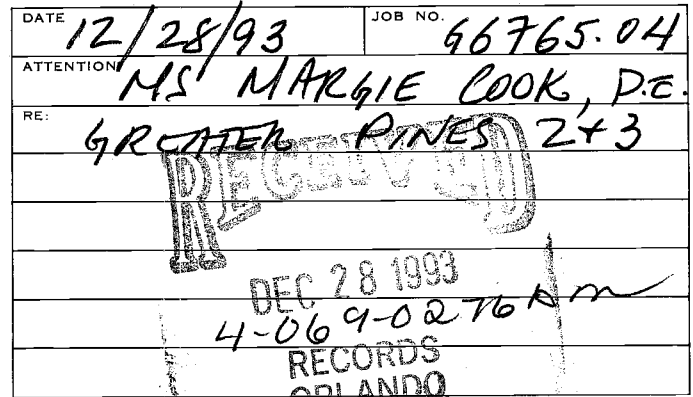 DATE 12/28/93 JOB NO. G6765.04
ATTENTION MS MARGIE COOK, P.E.
RE: GREATER PINES 2+3
RECEIVED
DEC 28 1993
4-069-0276
RECORDS
ORLANDO